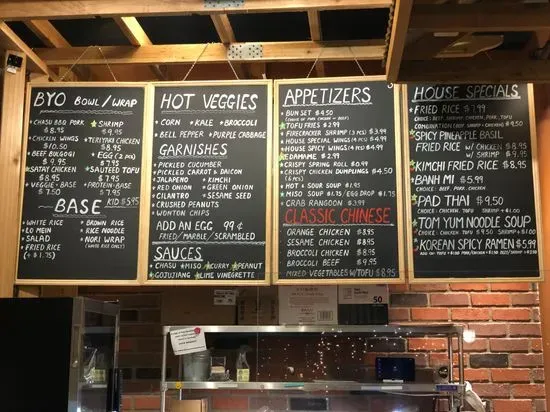 BYO BOWL/WRAP
CHASU BBQ PORK
$8.95
SHRIMP
$9.95
CHICKEN WINGS
$10.50
TERIYAKI CHICKEN
$8.95
BEEF BULGOGI
$9.95
EGG (2 PCS)
$7.95
SATAY CHICKEN
$8.95
SAUTEED TOFU
$7.95
VEGGIE-BASE
$7.50
PROTEIN-BASE
$7.95
KID $5.95
BASE
WHITE RICE
BROWN RICE
LO MEIN
RICE NOODLE
SALAD
NORI WRAP
(WHITE RICE ONLY)
FRIED RICE
(+$1.75)
HOT VEGGIES
CORN KALE BROCCOLI
BELL PEPPER PURPLE CABBAGE
GARNISHES
PICKLED CUCUMBER
PICKLED CARROT & DAICON
JALAPENO KIMCHI
RED ONION GREEN ONION
CILANTRO SESAME SEED
CRUSHED PEANUTS
WONTON CHIPS
ADD AN EGG 99¢
FRIED/MARBLE/SCRAMBLED
SAUCES
CHASU MISO CURRY PEANUT
GOZUJIANG LIME VINEGRETTE
APPETIZERS
BUN SET $4.50
TOFU FRIES $2.99
FIRECRACKER SHRIMP (3 PCS) $3.99
HOUSE SPECIAL WINGS (4 PCS) $4.99
HOUSE SPICY WINGS (4 PCS) $4.99
EDAMAME $2.99
CRISPY SPRING ROLL $0.99
CRISPY CHICKEN DUMPLINGS $4.50
(6 PCS)
HOT & SOUR SOUP $1.95
MISO SOUP $1.75/EGG DROP $1.75
CRAB RANGOON $3.99
CLASSIC CHINESE
ORANGE CHICKEN $8.95
SESAME CHICKEN $8.95
BROCCOLI CHICKEN $8.95
BROCCOLI BEEF $9.95
MIXED VEGETABLES W/TOFU $8.95
HOUSE SPECIALS
FRIED RICE $7.99
CHOICE: CHICKEN, BEEF, SHRIMP, PORK, TOFU
SPICY PINEAPPLE BASIL
FRIED RICE W/ CHICKEN $8.95
W/ SHRIMP $9.95
KIMCHI FRIED RICE $8.95
BANH MI $5.95
CHOICE: BEEF, PORK, CHICKEN
PAD THAI $9.50
TOM YUM NOODLE SOUP
KOREAN SPICY RAMEN $5.99
50